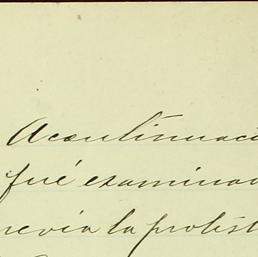 Acontinuaci
fué examinad
revia la protest